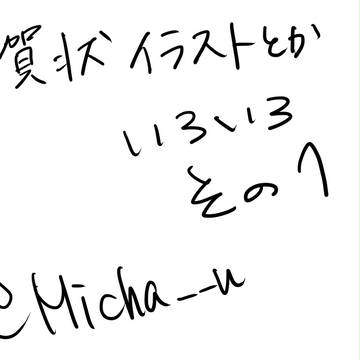 賀状イラストとか
いろいろ
その1
@Micha__u